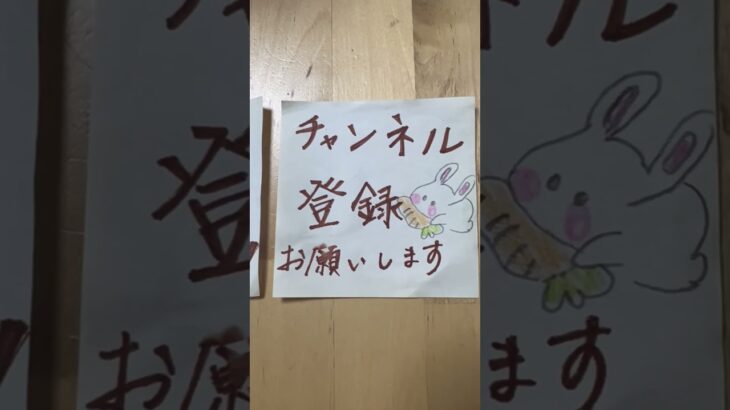 チャンネル
登録
お願いします